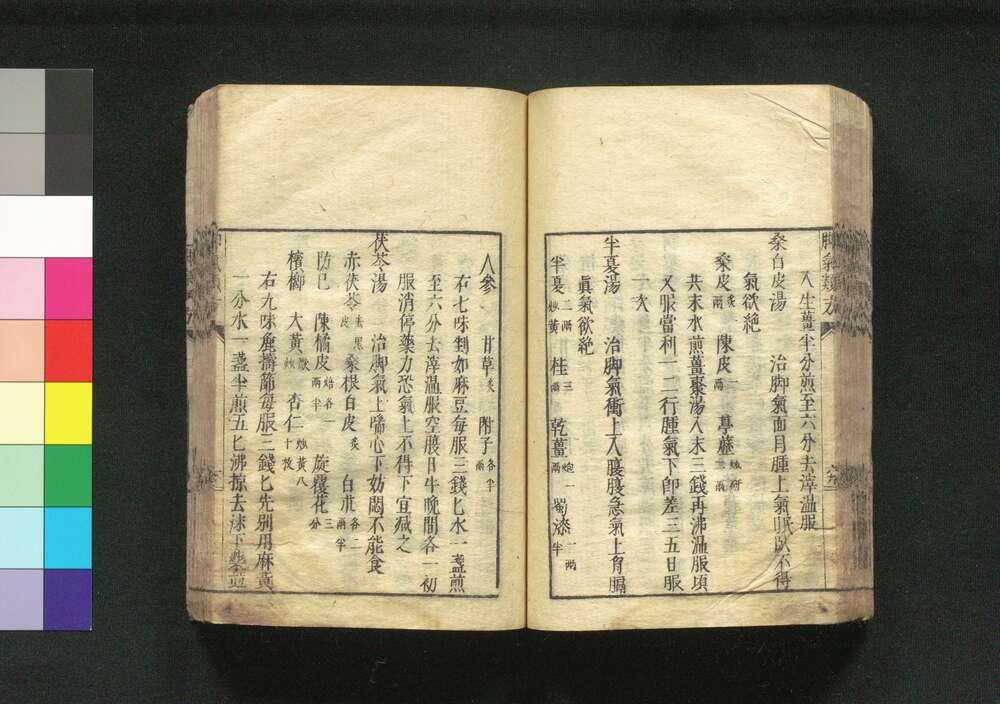 脚氣類方
入生薑半分煎至六分去滓温服
桑白皮湯　治脚氣面目腫上氣眠臥不得
氣欲絶
桑皮炙兩　陳皮一兩　葶藶炒研二兩
共末水煎薑棗湯入末三錢再沸温服頃
又服當利一二行腫氣下即差三五日服
一次
半夏湯　治脚氣衝上入腹腹急氣上脅膈
眞氣欲絶
半夏二兩炒黄　桂三兩　乾薑炮一兩　蜀漆一兩半
人參　甘草炙　附子各半兩
右七味剉如麻豆每服三錢匕水一盞煎
至六分去滓温服空腹日午晩間各一初
服消停藥力恐氣上不得下宜減之
茯苓湯　治脚氣上喘心下妨悶不能食
赤茯苓去黒皮　桑根白皮炙　白朮各二兩半
防已　陳橘皮焙各一兩半　旋覆花三分
檳榔　大黄炊　杏仁炒黄八十枚
右九味麄擣篩每服三錢匕先別用麻黄
一分水一盞半煎五七沸掠去沫下